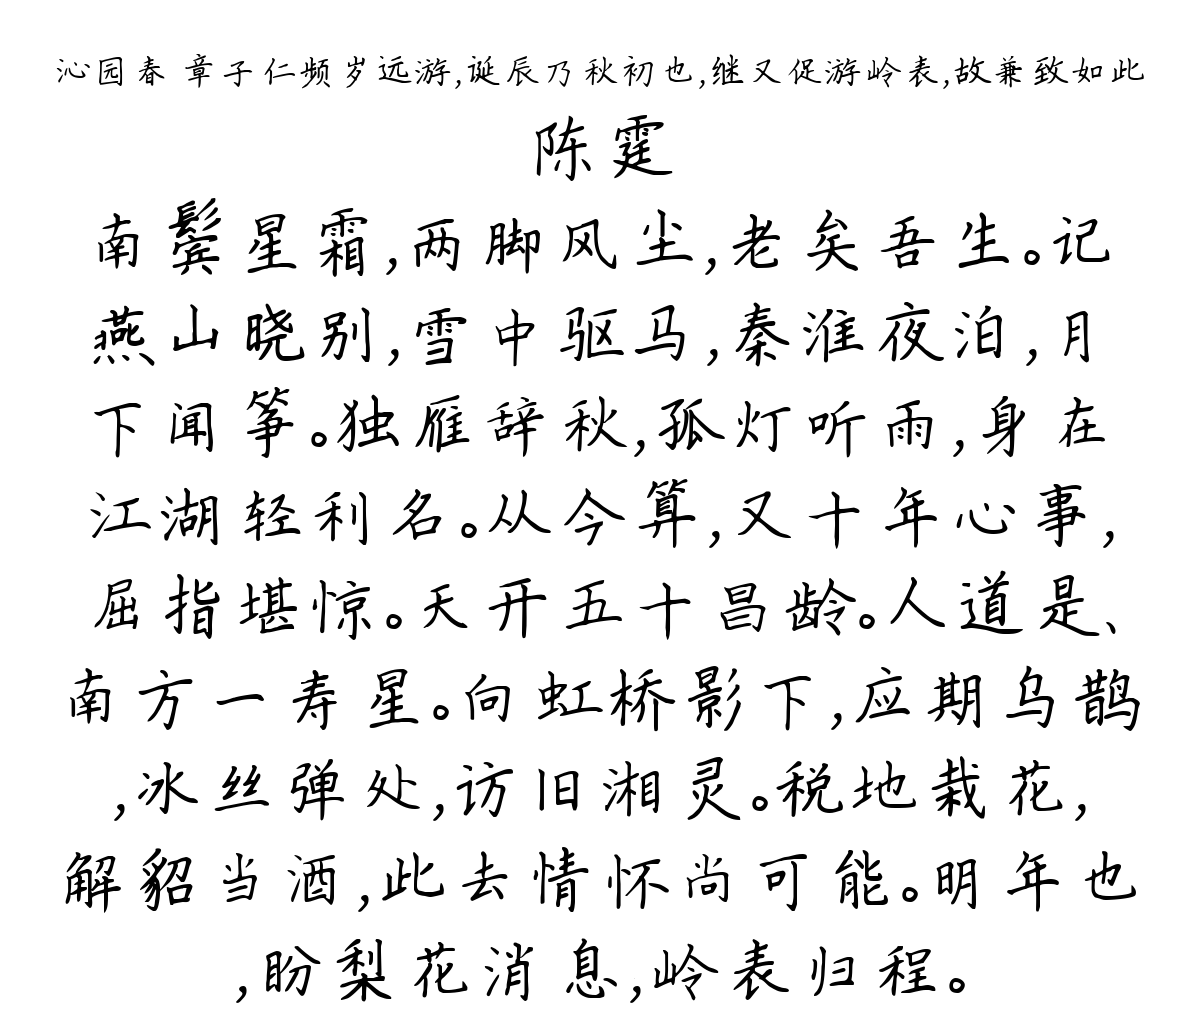 沁园春 章子仁频岁远游,诞辰乃秋初也,继又促游岭表,故兼致如此
陈霆
南鬓星霜,两脚风尘,老矣吾生。记
燕山晓别,雪中驱马,秦淮夜泊,月
下闻筝。独雁辞秋,孤灯听雨,身在
江湖轻利名。从今算,又十年心事,
屈指堪惊。天开五十昌龄。人道是、
南方一寿星。向虹桥影下,应期乌鹊
,冰丝弹处,访旧湘灵。税地栽花,
解貂当酒,此去情怀尚可能。明年也
,盼梨花消息,岭表归程。